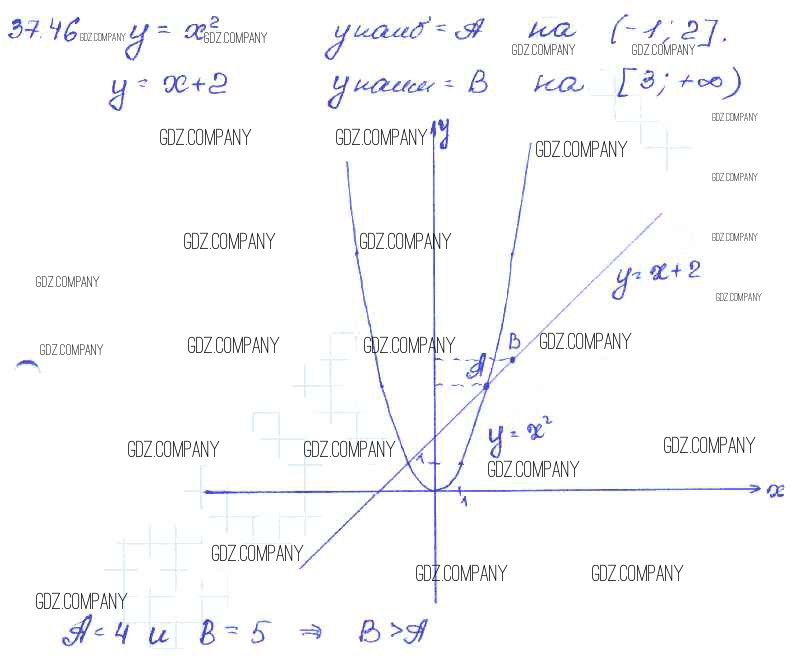 37.46 GDZ.COMPANY y = x² GDZ.COMPANY yнаиб = A на (-1; 2].
GDZ.COMPANY GDZ.COMPANY
y = x+2 yнаим = B на [3; +∞)
GDZ.COMPANY
GDZ.COMPANY GDZ.COMPANY y GDZ.COMPANY
GDZ.COMPANY
GDZ.COMPANY GDZ.COMPANY GDZ.COMPANY
y = x + 2
GDZ.COMPANY GDZ.COMPANY
GDZ.COMPANY GDZ.COMPANY GDZ.COMPANY B GDZ.COMPANY
A
y = x²
GDZ.COMPANY GDZ.COMPANY GDZ.COMPANY
1 GDZ.COMPANY
1 x
GDZ.COMPANY
GDZ.COMPANY GDZ.COMPANY
GDZ.COMPANY
A = 4 и B = 5 ⇒ B > A